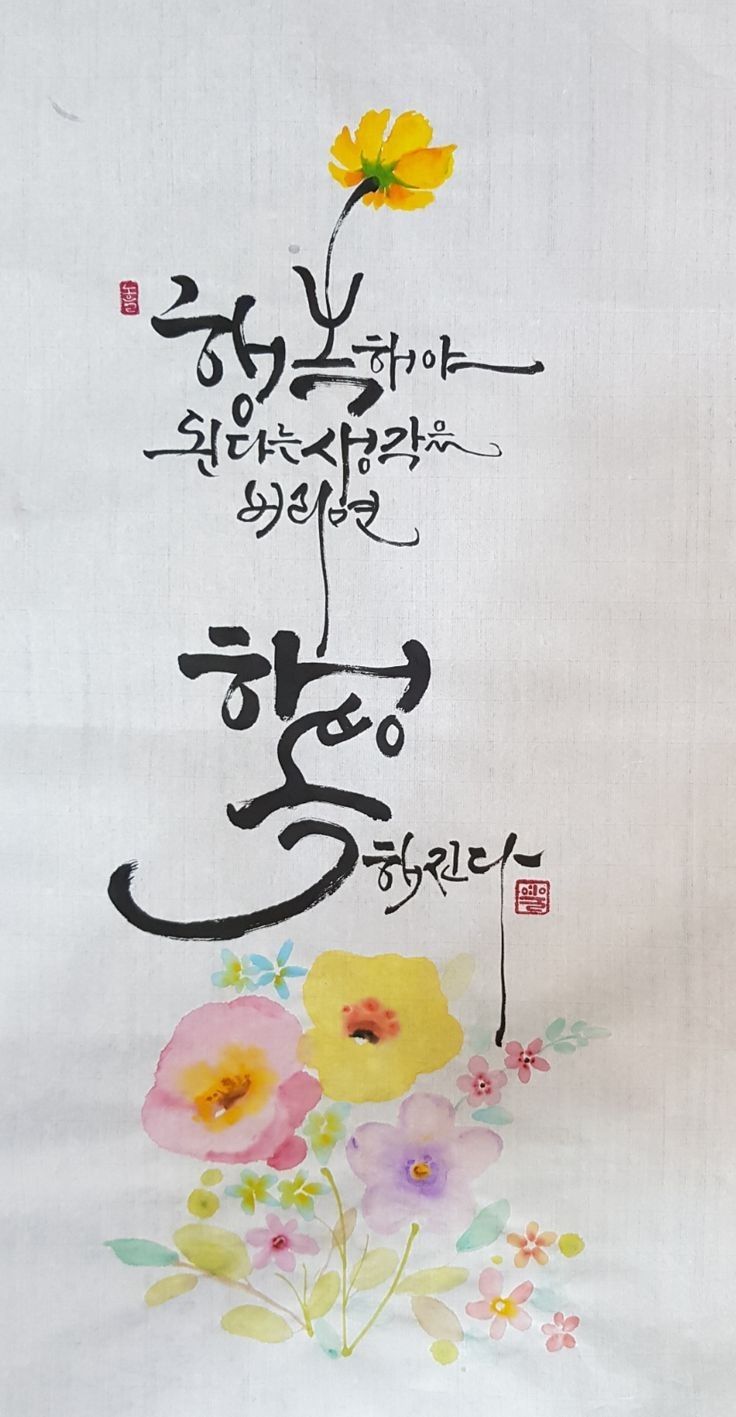 행복해야
된다는 생각을
버리면
행복
해진다